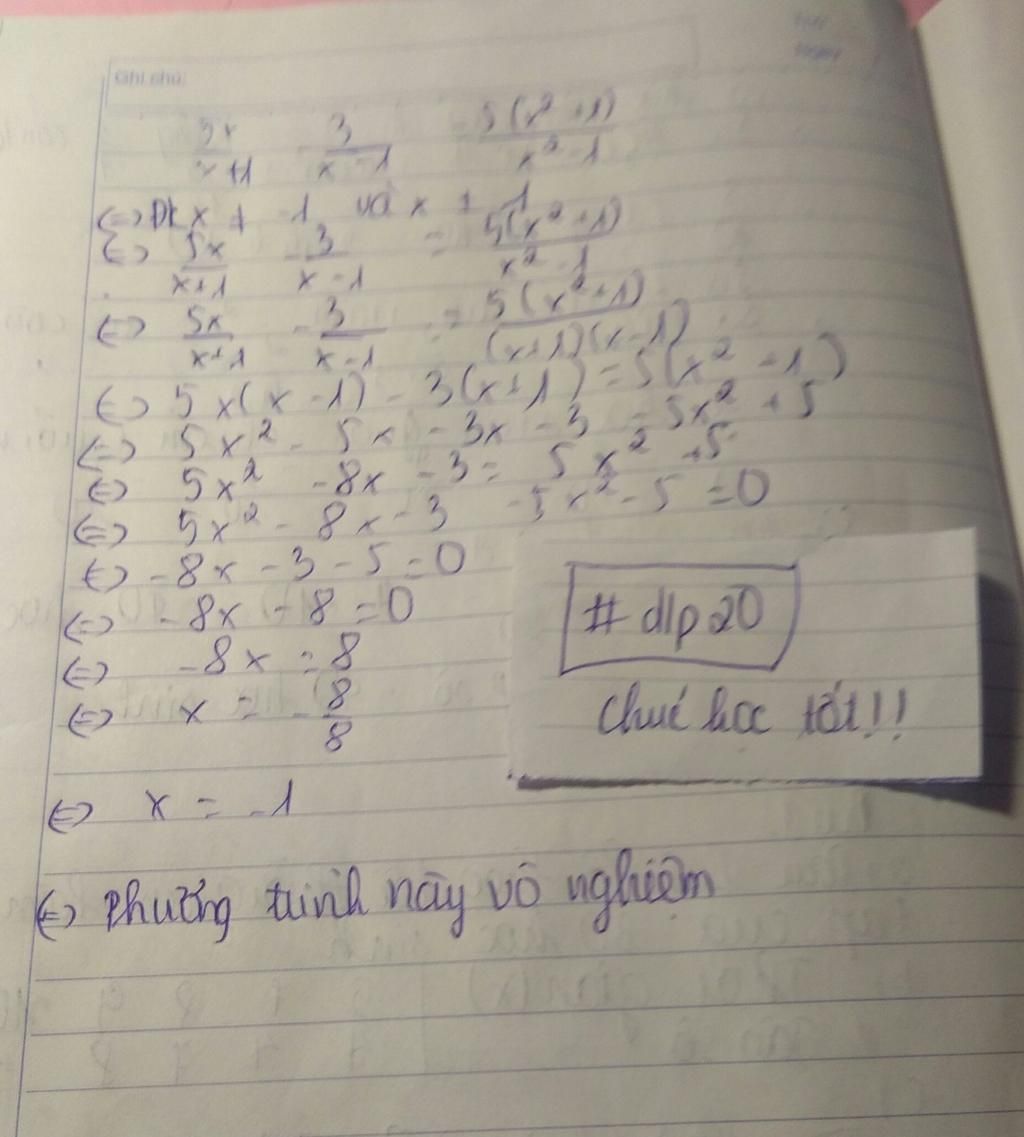 Ghi chú:
5x/x+1 - 3/x-1 = 5(x² +1)/x²-1
(=) Đk x ≠ -1 và x ≠ 1
(=) 5x/x+1 - 3/x-1 = 5(x²+1)/x²-1
(=) 5x/x+1 - 3/x-1 = 5(x²+1)/(x+1)(x-1)
(=) 5x(x-1) - 3(x+1) = 5(x² +1)
(=) 5x² - 5x - 3x - 3 = 5x² + 5
(=) 5x² - 8x - 3 = 5x² +5
(=) 5x² - 8x - 3 - 5x² - 5 = 0
(=) -8x - 3 - 5 = 0
(=) -8x - 8 = 0
(=) -8x = 8
(=) x = -8/8
(=) x = -1
(=) Phương trình này vô nghiệm
# dlp20
Chúc học tốt!!